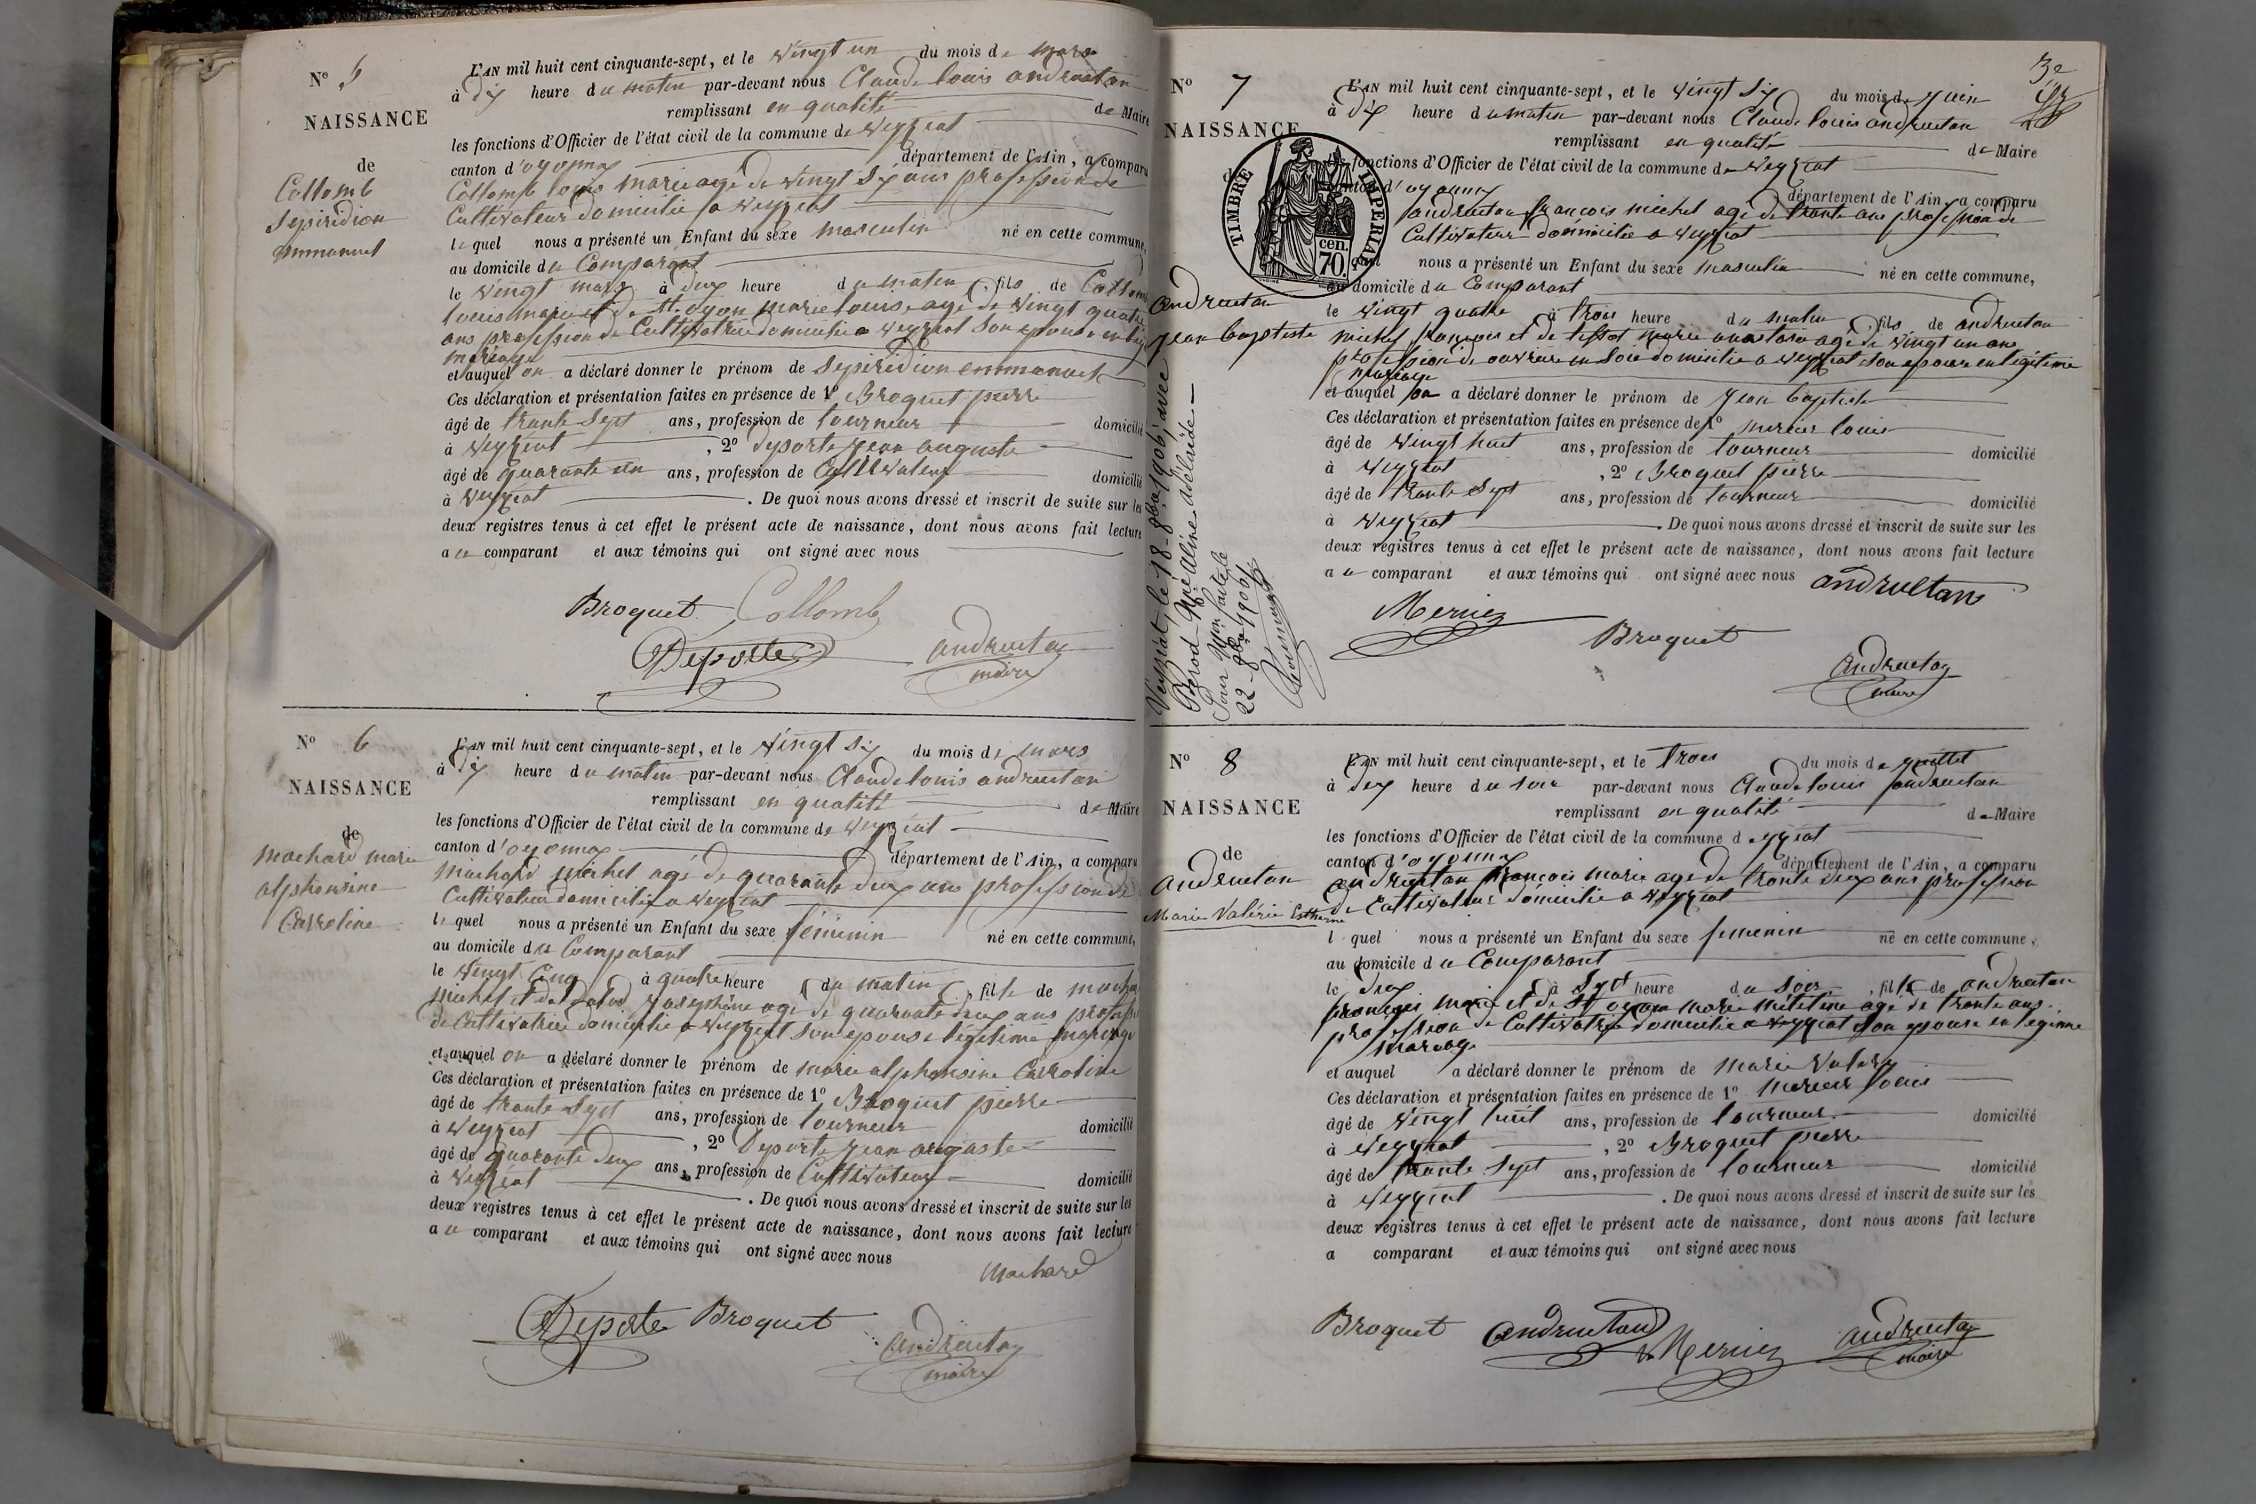 N° 5
NAISSANCE
de
Collomb
Sepiridion
Emmanuel
L'AN mil huit cent cinquante-sept, et le vingt un du mois de mars
à dix heure du matin par-devant nous Claude louis andruetan
remplissant en qualité de Maire
les fonctions d'Officier de l'état civil de la commune de veyziat
canton d'oyonnax département de l'Ain, a comparu
Collomb louis marie agé de vingt six ans profession de
Cultivateur domicilié a veyziat
lequel nous a présenté un Enfant du sexe masculin né en cette commune,
au domicile du Comparant
le vingt mars à deux heure du matin, fils de Collomb
louis marie et de St. oyon marie louise agé de vingt quatre
ans profession de Cultivatrice domicilié a veyziat son epouse en légi
mariage
et auquel on a déclaré donner le prénom de Sepiridion emmanuel
Ces déclaration et présentation faites en présence de 1° Broquet pierre
âgé de trante Sept ans, profession de tourneur domicilié
à veyziat, 2° Deporte jean auguste
âgé de quarante un ans, profession de Cultivateur domicilié
à veyziat. De quoi nous avons dressé et inscrit de suite sur les
deux registres tenus à cet effet le présent acte de naissance, dont nous avons fait lecture
au comparant et aux témoins qui ont signé avec nous
Broquet Collomb
Deporte andruetan
maire
N° 6
NAISSANCE
de
machard marie
alphonsine
Carroline
L'AN mil huit cent cinquante-sept, et le vingt six du mois de mars
à dix heure du matin par-devant nous Claude louis andruetan
remplissant en qualité de Maire
les fonctions d'Officier de l'état civil de la commune de veyziat
canton d'oyonnax département de l'Ain, a comparu
machard michel agé de quarante deux ans profession de
Cultivateur domicilié a veyziat
lequel nous a présenté un Enfant du sexe féminin né en cette commune,
au domicile du Comparant
le vingt Cinq à quatre heure du matin, fille de macha
michel et de joséphine agé de quarante deux ans profess
de Cultivatrice domicilié a veyziat son epouse légitime mariage
et auquel on a déclaré donner le prénom de marie alphonsine Carroline
Ces déclaration et présentation faites en présence de 1° Broquet pierre
âgé de trante Sept ans, profession de tourneur domicilié
à veyziat, 2° Deporte jean auguste
âgé de quarante deux ans, profession de Cultivateur domicilié
à veyziat. De quoi nous avons dressé et inscrit de suite sur les
deux registres tenus à cet effet le présent acte de naissance, dont nous avons fait lecture
au comparant et aux témoins qui ont signé avec nous
machard
Deporte Broquet andruetan
maire
3e
N° 7
NAISSANCE
de
andruetan
jean baptiste
TIMBRE IMPERIAL
cen.
70.
Veyziat, le 18-8bre 1906, avec
Berod Mie Aline Adélaïde
Pour Mon faite le
22-8bre 1906
L'AN mil huit cent cinquante-sept, et le vingt six du mois de juin
à dix heure du matin par-devant nous Claude louis andruetan
remplissant en qualité de Maire
les fonctions d'Officier de l'état civil de la commune de veyziat
canton d'oyonnax département de l'Ain, a comparu
andruetan françois michel agé de trante ans profession de
Cultivateur domicilié a veyziat
quel nous a présenté un Enfant du sexe masculin né en cette commune,
au domicile du Comparant
le vingt quatre à trois heure du matin, fils de andruetan
michel françois et de tissot marie anastasie agé de vingt un ans
profession de ouvrière en Soie domicilié a veyziat son epouse en légitime
mariage
et auquel on a déclaré donner le prénom de jean baptiste
Ces déclaration et présentation faites en présence de 1° mercier louis
âgé de vingt huit ans, profession de tourneur domicilié
à veyziat, 2° Broquet pierre
âgé de trante Sept ans, profession de tourneur domicilié
à veyziat. De quoi nous avons dressé et inscrit de suite sur les
deux registres tenus à cet effet le présent acte de naissance, dont nous avons fait lecture
au comparant et aux témoins qui ont signé avec nous andruetan
Mercier
Broquet
andruetan
maire
N° 8
NAISSANCE
de
andruetan
Marie Valérie Estherine
L'AN mil huit cent cinquante-sept, et le trois du mois de juillet
à deux heure du soir par-devant nous Claude louis andruetan
remplissant en qualité de Maire
les fonctions d'Officier de l'état civil de la commune d eyziat
canton d'oyonnax département de l'Ain, a comparu
andruetan françois marie agé de trante deux ans profession
de Cultivateur domicilié a veyziat
l quel nous a présenté un Enfant du sexe femenin né en cette commune,
au domicile du Comparant
le deux à Sept heure du Soir, fille de andruetan
françois marie et de St oyon marie agé de trante ans
profession de Cultivatrice domicilié a veyziat son epouse en légitime
mariage
et auquel a déclaré donner le prénom de marie Valery
Ces déclaration et présentation faites en présence de 1° mercier louis
âgé de vingt huit ans, profession de tourneur domicilié
à veyziat, 2° Broquet pierre
âgé de trante Sept ans, profession de tourneur domicilié
à veyziat. De quoi nous avons dressé et inscrit de suite sur les
deux registres tenus à cet effet le présent acte de naissance, dont nous avons fait lecture
a comparant et aux témoins qui ont signé avec nous
Broquet andruetan Mercier andruetan
maire